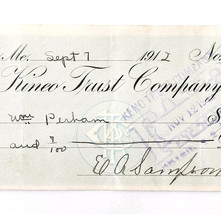 Me. Sept 7 1912 No.
Kineo Trust Company
Wm Perham $
and 7/100
E A Sampson